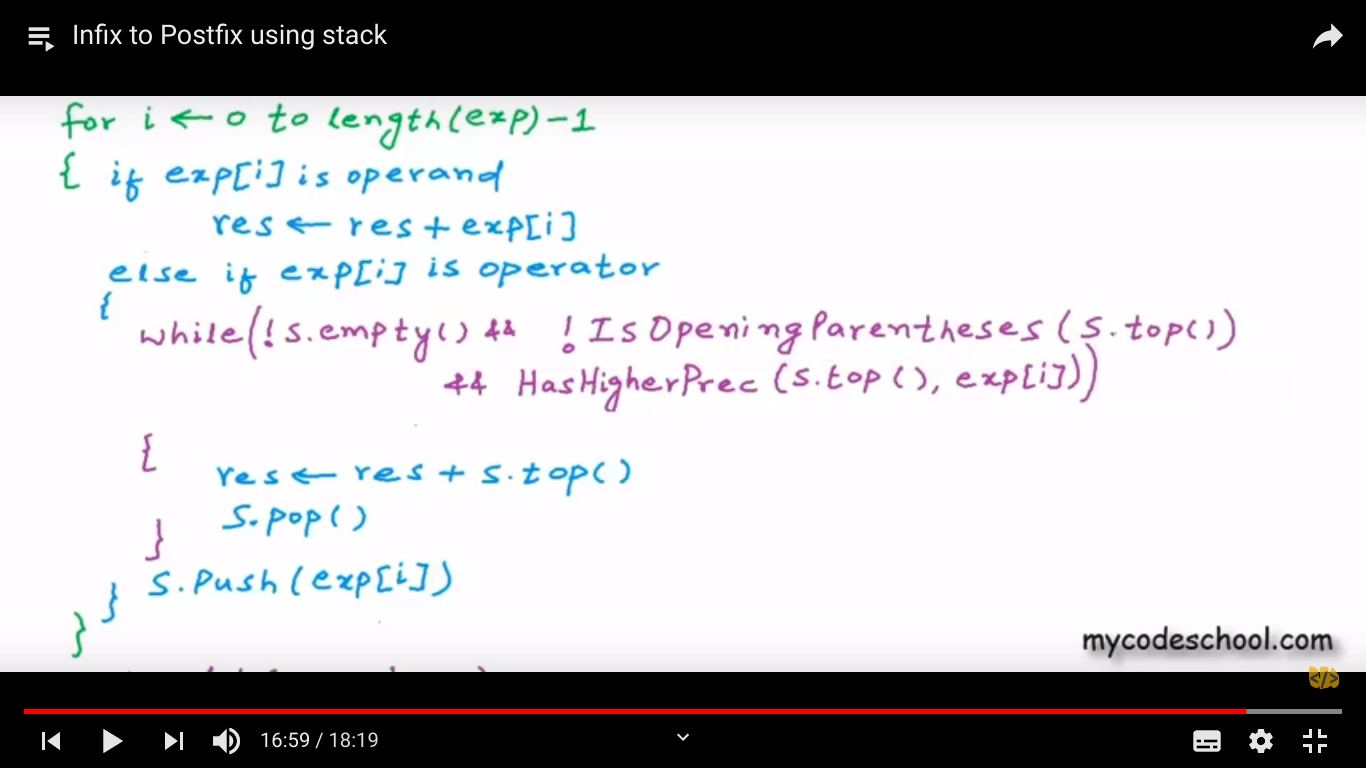 Infix to Postfix using stack
for i ← 0 to length(exp)-1
{ if exp[i] is operand
res ← res + exp[i]
else if exp[i] is operator
{
while(!s.empty() && !IsOpeningParentheses(s.top())
&& HasHigherPrec(s.top(), exp[i]))
{
res ← res + s.top()
s.pop()
}
s.push(exp[i])
}
}
mycodeschool.com
</>
16:59 / 18:19